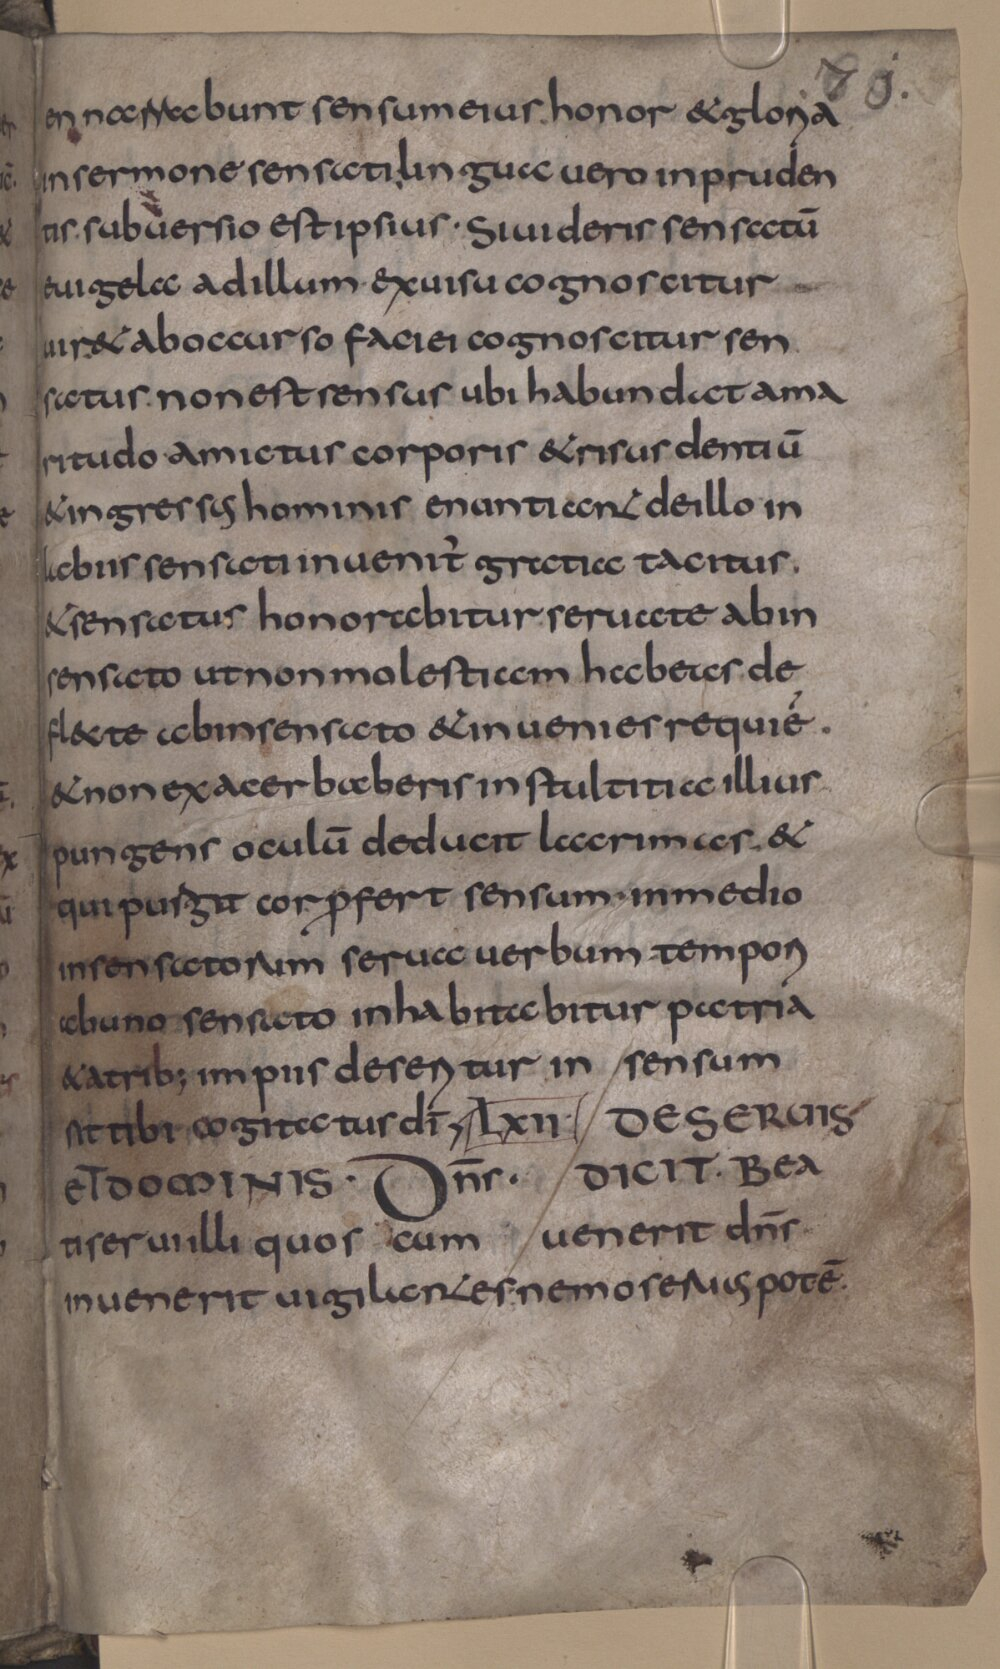 79.
en narrabunt sensum eius. honor & gloria
in sermone sensati. lingua vero inpruden
tis. subuersio est ipsius. Si uideris sensatū
euigela ad illum. ex uisu cognoscitur
uir. & ab occurso faciei cognoscitur sen
satus. non est sensus ubi habundat ama
ritudo. amictus corporis & risus dentiū
& ingressus hominis enantiant de illo. in
labiis sensati inuenit̄ gratia. tacitus.
& sensatus honorabitur. serua te ab in
sensato ut non molestiam habeas. de
flecte ab insensato & inuenies requiē.
& non exacerbaberis in stultitia illius
pungens oculū deducit lacrimas. &
qui pungit cor p̄fert sensum. in medio
insensatorum serua uerbum tempori
ab uno sensato inhabitabitur patria
& a trib; impiis deseritur. in sensum
sit tibi cogitatus dī; LXII. DE SERVIS
et DOMINIS. Dn̄s. DICIT. Bea
ti serui illi quos cum uenerit dn̄s
inuenerit uigilantes. nemo seruus potē.